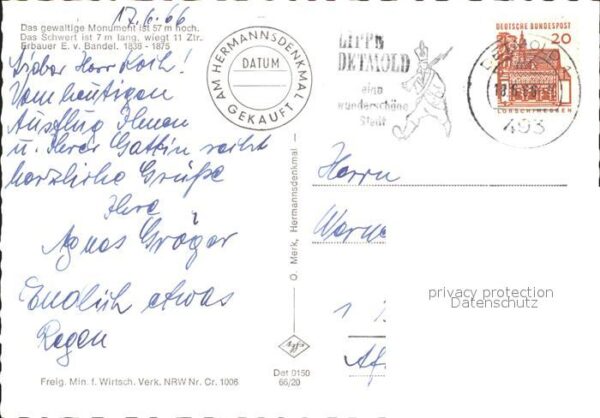 17.6.66
Das gewaltige Monument ist 57 m hoch.
Das Schwert ist 7 m lang, wiegt 11 Ztr.
Erbauer E. v. Bandel. 1838 - 1875
Lieber Herr Roth!
Vom heutigen
Ausflug Ihnen
u. Ihrer Gattin recht
herzliche Grüße
Ihre
Agnes Gröger
Endlich etwas
Regen
Freig. Min. f. Wirtsch. Verk. NRW Nr. Cr. 1006
AM HERMANNSDENKMAL
DATUM
GEKAUFT
LIPPE
DETMOLD
eine
wunderschöne
Stadt
DEUTSCHE BUNDESPOST
20
LORSCH/HESSEN
DETMOLD
493
O. Merk, Hermannsdenkmal
Agfa
Det 0150
66/20
Herrn
Werne
1
Af
privacy protection
Datenschutz